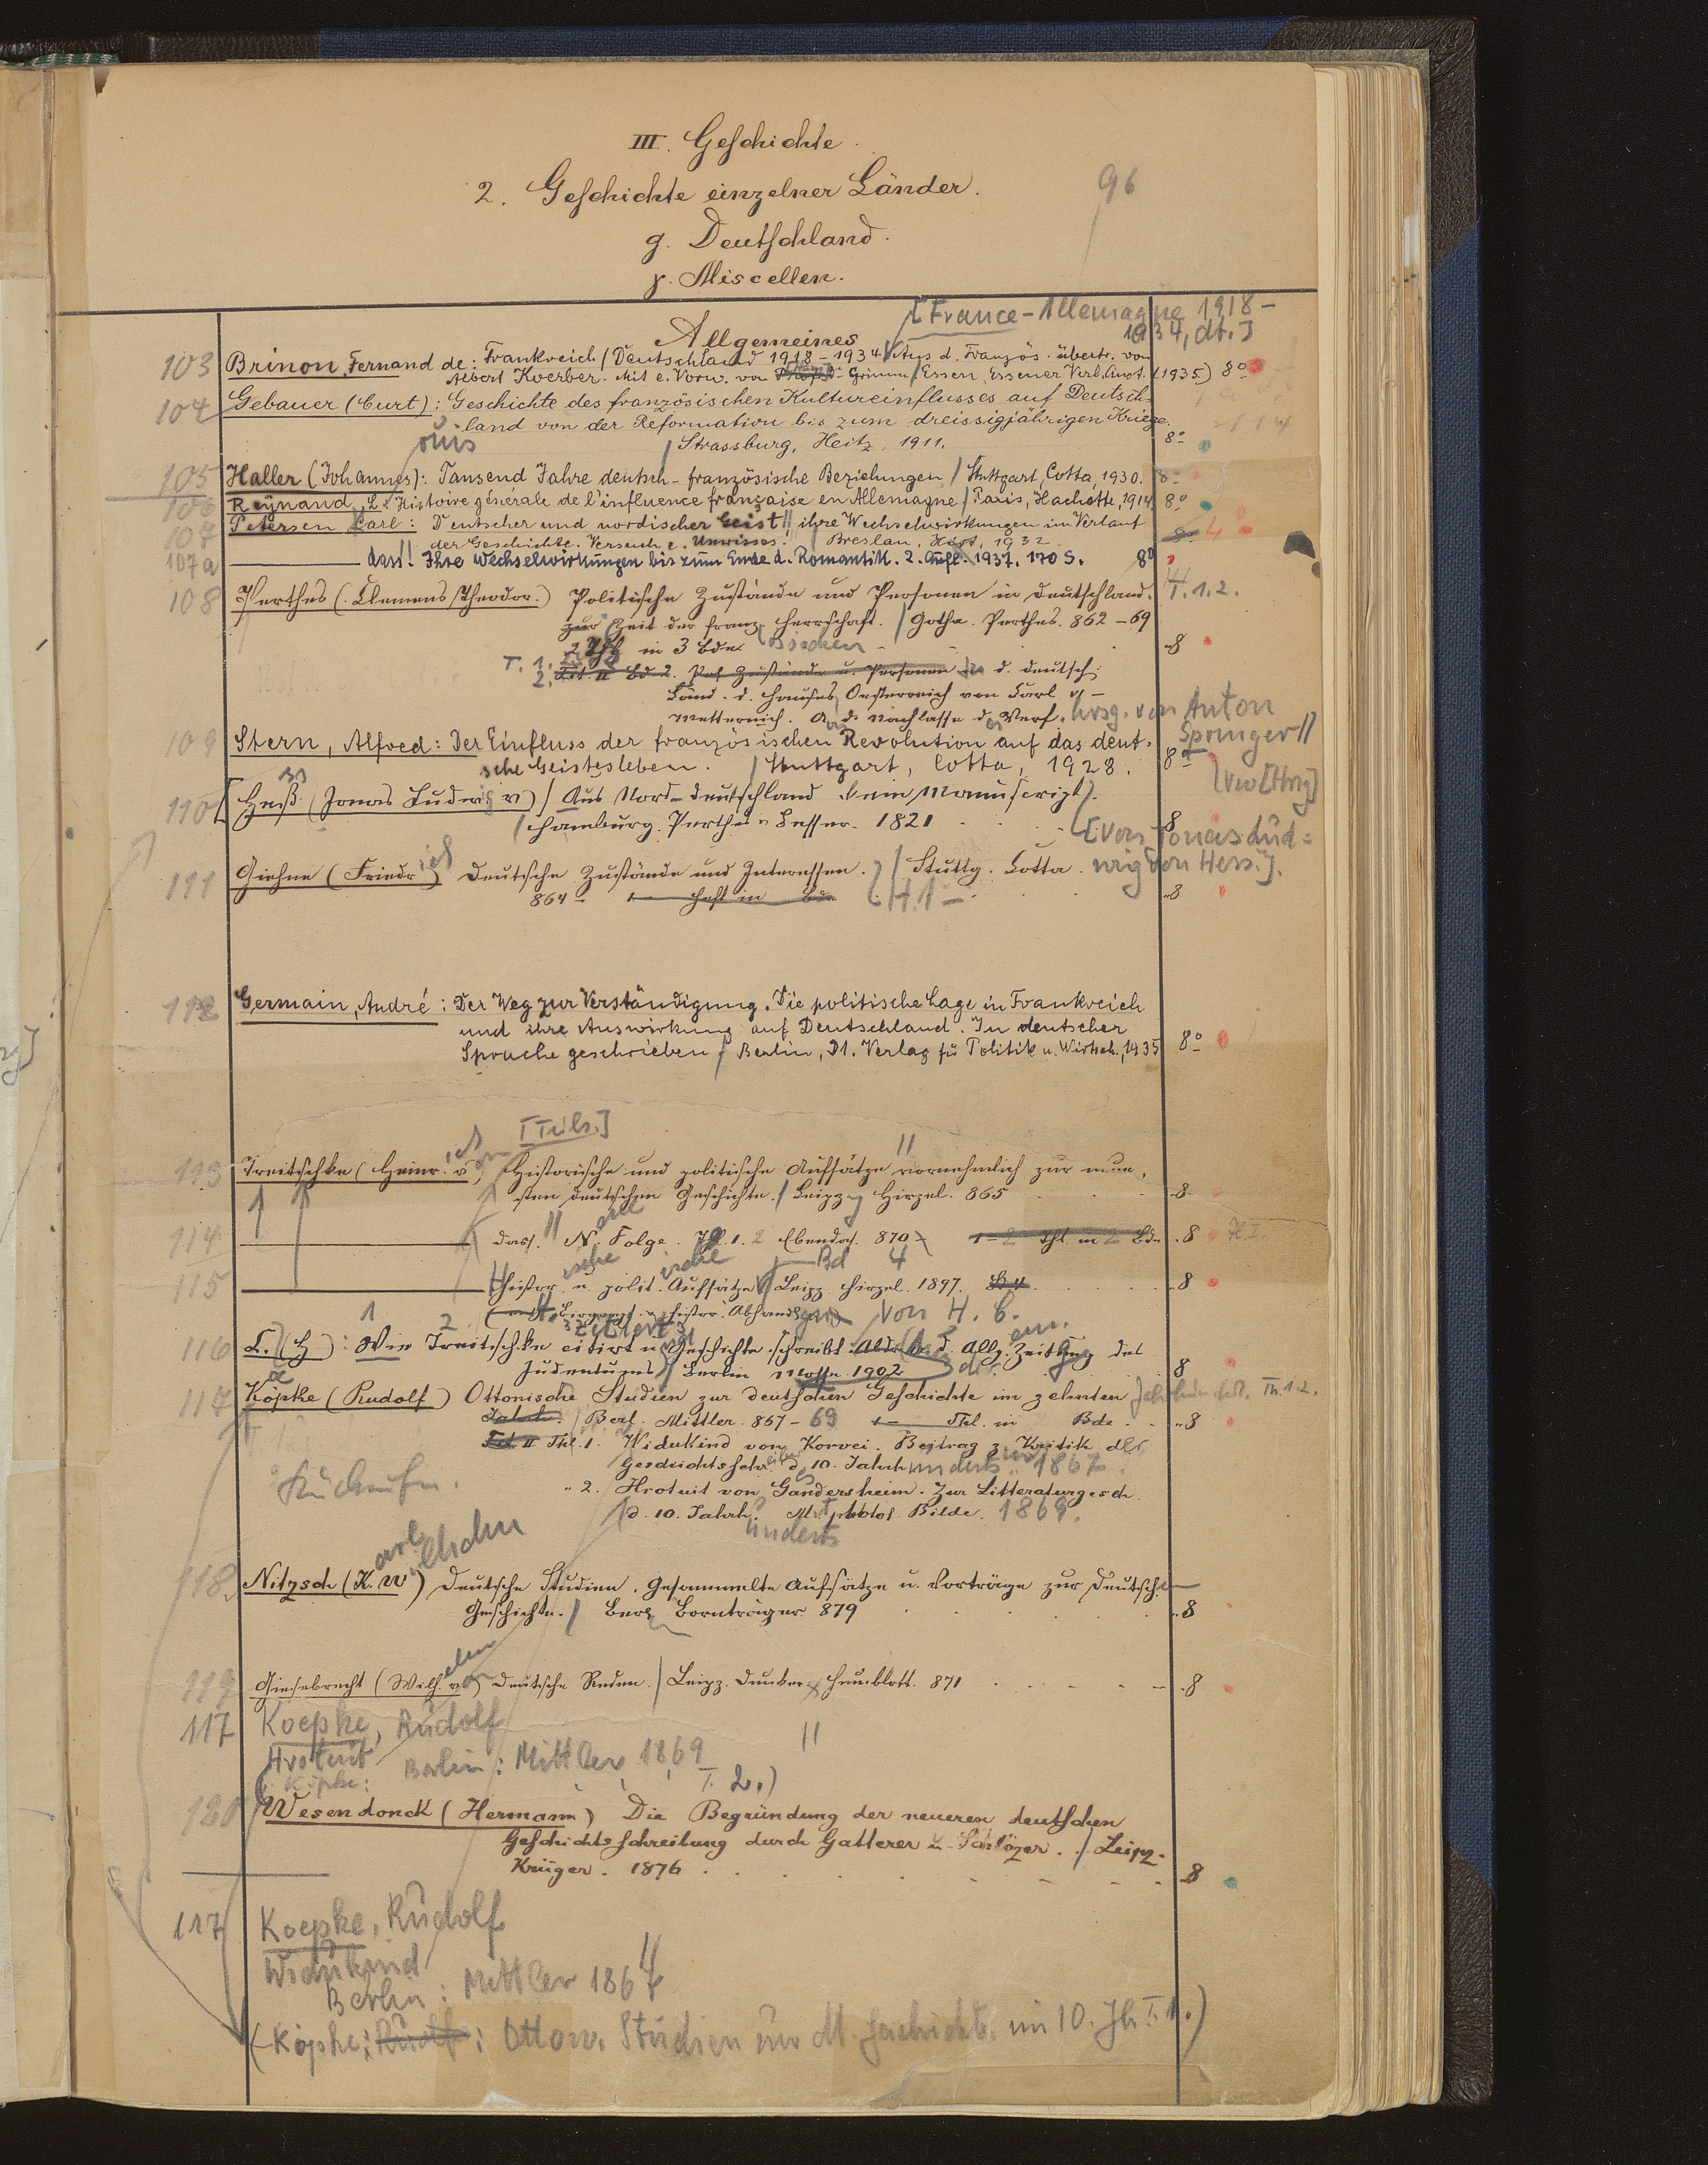 III. Geschichte.
2. Geschichte einzelner Länder.
96
g. Deutschland.
γ. Miscellen.
[France-Allemagne 1918-
1934, dt.]
Allgemeines
103 Brinon, Fernand de: Frankreich / Deutschland 1918-1934 / Aus d. Französ. übertr. von
Albert Koerber. Mit e. Vorw. von Grimm / Essen, Essener Verl. Anst. (1935) 8°
104 Gebauer (Curt): Geschichte des französischen Kultureinflusses auf Deutsch-
land von der Reformation bis zum dreissigjährigen Kriege.
/ Strassburg, Heitz, 1911. 8°
105 Haller (Johannes): Tausend Jahre deutsch-französische Beziehungen / Stuttgart, Cotta, 1930. 8°
ouis
106 Reynaud, L.: Histoire générale de l'influence française en Allemagne / Paris, Hachette, 1914. 8°
107 Petersen, Carl: Deutscher und nordischer Geist!! ihre Wechselwirkungen im Verlauf
der Geschichte. Versuch e. Umrisses. / Breslau, Hirt, 1932. 8° 4°
107a ——— dass!! Ihre Wechselwirkungen bis zum Ende d. Romantik. 2. Aufl. 1937. 170 S. 8°
108 Perthes (Clemens Theodor.) Politische Zustände und Personen in Deutschland. T. 1.2.
zur Zeit der franz. Herrschaft. / Gotha. Perthes. 862-69
2 Thl in 3 Bde. 8
T. 1.
2. Tit. II Bd 2. Pol. Zustände u. Personen in d. deutsch.
Länd. d. Hauses Oesterreich von Carl VI -
Metternich. A. d. Nachlasse d. Verf. hrsg. von Anton
Springer //
109 Stern, Alfred: Der Einfluss der französischen Revolution auf das deut-
sche Geistesleben. / Stuttgart, Cotta, 1928. 8°
110 [Heß (Jonas Ludwig v) / Aus Nord-Deutschland kein Manuscript].
/ Hamburg. Perthes u Besser. 1821 8
[von Jonas Lud=
wig von Hess.].
111 Giehne (Friedrich) Deutsche Zustände und Interessen. / Stuttg. Cotta.
864- 1- Heft in Bde H.1- 8
112 Germain, André: Der Weg zur Verständigung. Die politische Lage in Frankreich
und ihre Auswirkung auf Deutschland. In deutscher
Sprache geschrieben / Berlin, Dt. Verlag für Politik u. Wirtsch., 1935 8°
[Teils.]
113 Treitschke (Heinrich von) Historische und politische Aufsätze // vornehmlich zur neue-
sten deutschen Geschichte. / Leipzg Hirzel. 865 8
114 ——— dass. // Neue Folge. Thl. 1. 2 Ebendas. 870 1-2 Thl in 2 Bde. 8
115 ——— Historische u. politische Aufsätze / Leipz. Hirzel. 1897. Bd 4 8
von H. C.
116 C. (H): Wie Treitschke citirt u. Geschichte schreibt. Abdr. a. d. Allg. Zeitung des
zitiert
Judentums / Berlin Mosse 1902 8
117 Köpke (Rudolf) Ottonische Studien zur deutschen Geschichte im zehnten Jahrhundert. Th. 1.2.
Jahrh. / Berl. Mittler. 867-69 1- Thl. in Bde. 8
Tit. II Thl. 1. Widukind von Korvei. Beitrag z. Kritik der
Geschichtsschreiber d. 10. Jahrhunderts 1867.
" 2. Hrotuit von Gandersheim. Zur Litteraturgesch.
d. 10. Jahrh. Mit photol. Bilde. 1869.
underts
118. Nitzsch (Karl Wilhelm) Deutsche Studien. Gesammelte Aufsätze u. Vorträge zur deutschen
Geschichte. / Berl Bornträger 879 8
119 Giesebrecht (Wilhelm von) Deutsche Reden. / Leipz. Duncker & Humblott. 871 8
117 Koepke, Rudolf //
Hrotuit Berlin: Mittler, 1869
(Köpke: T. 2.)
120 Wesendonck (Hermann) Die Begründung der neueren deutschen
Geschichtsschreibung durch Gatterer u. Schlözer. / Leipz.
Krüger. 1876 8
117 Koepke, Rudolf
Widukind //
Berlin: Mittler 1867
(Köpke: Rudolf: Otton. Studien zur dt. Geschichte im 10. Jh. T. 1.)